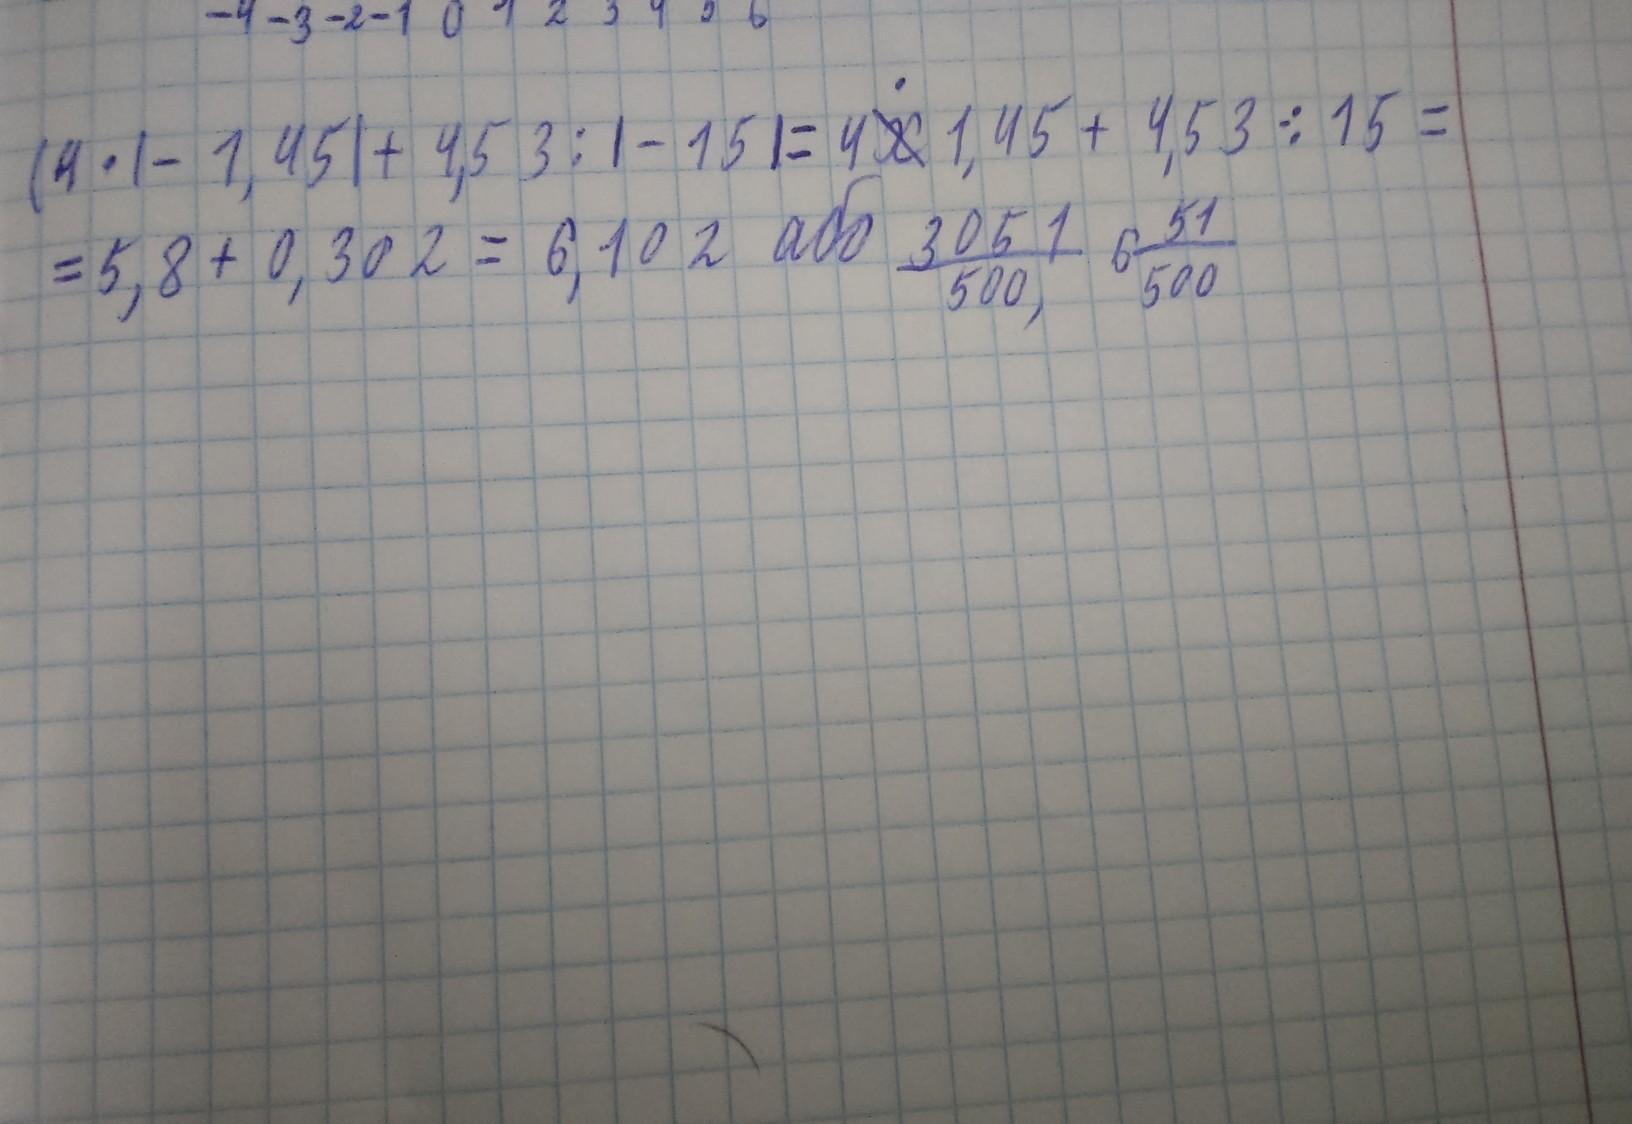 -4 -3 -2 -1 0 1 2 3 4 5 6
(4 · |- 1,45| + 4,53 : |- 15| = 4 · 1,45 + 4,53 ÷ 15 =
= 5,8 + 0,302 = 6,102 або 3051/500, 6 51/500